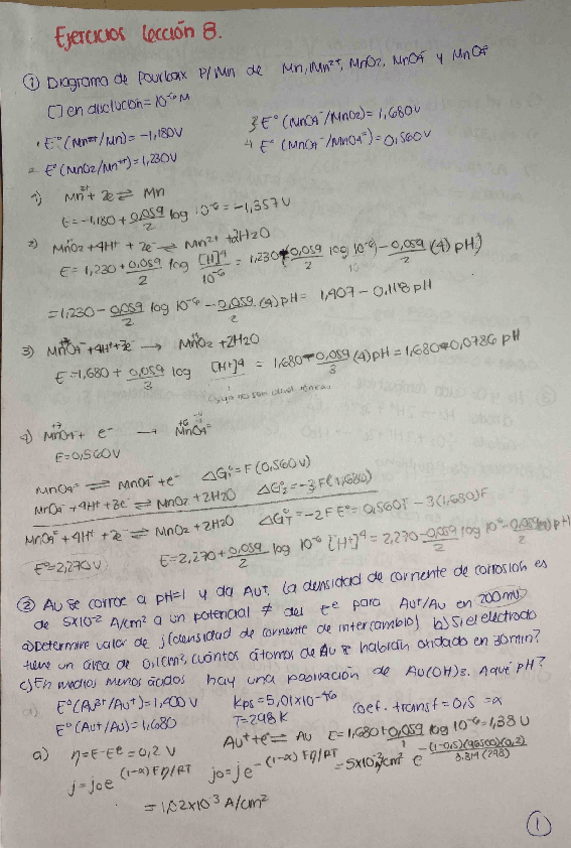 Ejercicios lección 8.
① Diagrama de Pourbaix p/Mn de Mn, Mn²⁺, MnO₂, MnO₄⁻ y MnO₄⁼
[] en disolución = 10⁻⁶ M
1 E°(Mn²⁺/Mn) = -1,180V 3 E°(MnO₄⁻/MnO₂) = 1,680V
2 E°(MnO₂/Mn²⁺) = 1,230V 4 E°(MnO₄⁻/MnO₄⁼) = 0,560V
1) Mn²⁺ + 2e ⇌ Mn
E = -1,180 + 0,059/2 log 10⁻⁶ = -1,357 V
2) MnO₂ + 4H⁺ + 2e ⇌ Mn²⁺ + 2H₂O
E = 1,230 + 0,059/2 log [H⁺]⁴/10⁻⁶ = 1,230 0,059/2 log 10⁻⁶ - 0,059/2 (4) pH
= 1,230 - 0,059/2 log 10⁻⁶ - 0,059/2 (4) pH = 1,407 - 0,118 pH
3) MnO₄⁻ + 4H⁺ + 3e → MnO₂ + 2H₂O
E = 1,680 + 0,059/3 log [H⁺]⁴ = 1,680 - 0,059/3 (4) pH = 1,680 - 0,0786 pH
4) MnO₄⁻ + e⁻ → MnO₄⁼
E = 0,560V
MnO₄⁼ ⇌ MnO₄⁻ + e⁻ ΔG₁° = F(0,560V)
MnO₄⁻ + 4H⁺ + 3e⁻ ⇌ MnO₂ + 2H₂O ΔG₂° = -3F(1,680)
MnO₄⁼ + 4H⁺ + 2e⁻ ⇌ MnO₂ + 2H₂O ΔG_T° = -2FE° = 0,560F - 3(1,680)F
E° = 2,270V E = 2,270 + 0,059/2 log 10⁻⁶ [H⁺]⁴ = 2,270 - 0,059/2 log 10⁻⁶ - 0,059/2 (4) pH
② Au se corroe a pH=1 y da Au⁺. La densidad de corriente de corrosión es
de 5x10⁻² A/cm² a un potencial ≠ del Eᵉ para Au⁺/Au en 200mV
a) Determine valor de j (densidad de corriente de intercambio) b) Si el electrodo
tiene un área de 0,1cm², cuántos átomos de Au se habrán oxidado en 30min?
c) En medios menos ácidos hay una pasivación de Au(OH)₃. A qué pH?
E°(Au³⁺/Au⁺) = 1,400 V Kps = 5,01x10⁻⁴⁶ coef. transf = 0,5 = α
E°(Au⁺/Au) = 1,680 T = 298 K
a) η = E - Eᵉ = 0,2 V Au⁺ + e ⇌ Au E = 1,680 + 0,059/1 log 10⁻⁶ = 1,33 V
j = j₀e^(1-α)Fη/RT j₀ = je^-(1-α)Fη/RT = 5x10⁻²/cm² e^-(1-0,5)(96500)(0,2)/8.314(298)
= 1,02x10⁻³ A/cm²
①